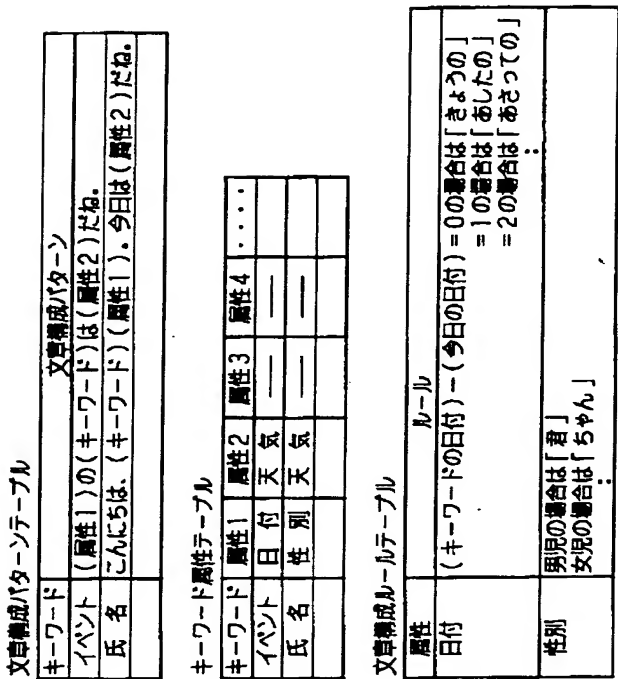 文章構成パターンテーブル
キーワード 文章構成パターン
イベント (属性1)の(キーワード)は(属性2)だね。
氏名 こんにちは、(キーワード)(属性1)。今日は(属性2)だね。
キーワード属性テーブル
キーワード 属性1 属性2 属性3 属性4 ・・・・
イベント 日付 天気 — —
氏名 性別 天気 — —
文章構成ルールテーブル
属性 ルール
日付 (キーワードの日付)−(今日の日付)=0の場合は「きょうの」
=1の場合は「あしたの」
=2の場合は「あさっての」
:
性別 男児の場合は「君」
女児の場合は「ちゃん」
: